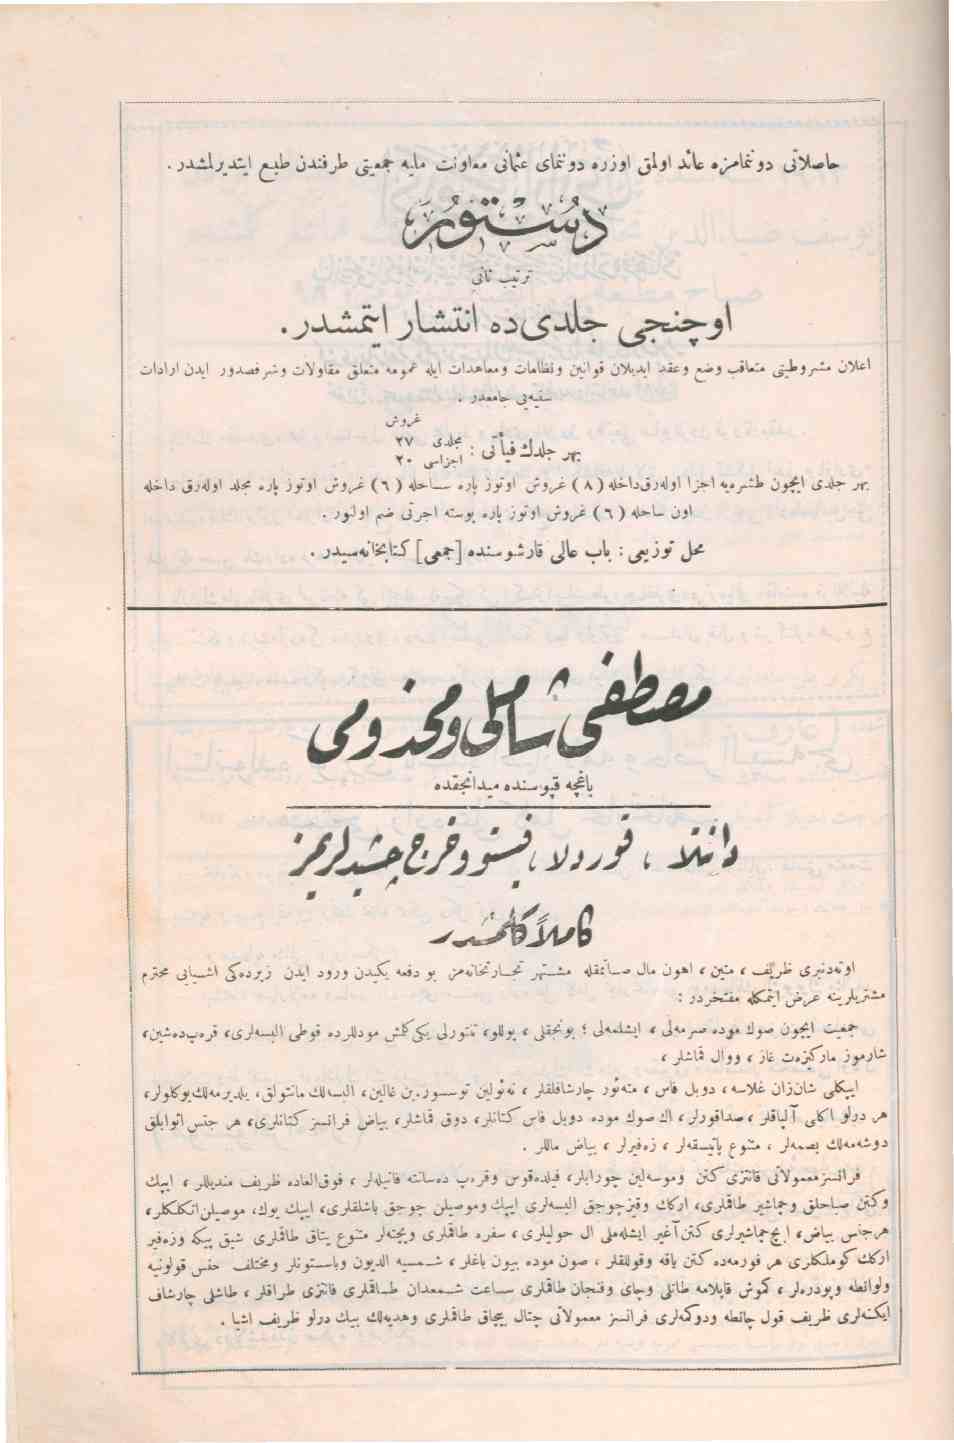 حاصلاتی دوننمامزه عائد اولمق اوزره دوننمای عثمانی معاونت ملیه جمعیتی طرفندن طبع ایتدیرلمشدر .
دستور
ترتیب ثانی
اوچنجی جلدی ده انتشار ایتمشدر .
اعلان مشروطیتی متعاقب وضع وعقد ایدیلان قوانین ونظامات ومعاهدات ایله عمومه متعلق مقاولات وشرفصدور ایدن ارادات
سنیه‌یی جامعدر .
غروش
بهر جلدك فیأتی : مجلدی ۲۷
اجزاسی ۲۰
بهر جلدی ایچون طشره‌یه اجزا اوله‌رق داخله (۸) غروش اوتوز پاره ساحله (٦) غروش اوتوز پاره مجلد اوله‌رق داخله
اون ساحله (٦) غروش اوتوز پاره پوسته اجرتی ضم اولنور .
محل توزیعی : باب عالی قارشوسنده [جمعی] کتابخانه‌سیدر .
مصطفی شاملی ومخدومی
باغچه قپوسنده میدانجقده
دانتلا ، قوردلا ، فیستو وخرج چشیدلریمز
کاملاً کلمشدر
اوته‌دنبری ظریف ، متین ، اهون مال صاتمقله مشتهر تجارتخانه‌مز بو دفعه یکیدن ورود ایدن زیرده‌کی اشیایی محترم
مشتریلرینه عرض ایتمکله مفتخردر :
جمعیت ایچون صوك موده صرمه‌لی ، ایشلمه‌لی ؛ بونجقلی ، پوللو، تنتورلی یکی کلمش مودللرده قوطی البسه‌لری، قره‌پ ده‌شین،
شارموز مارکیزه‌ت غاز ، ووال قماشلر ،
ایپکلی شان‌ژان غلاسه ، دوبل فاس ، مته‌ئور چارشافلقلر ، البسه‌لك مانتولق، یلدیرمه‌لك بوکلولر،
هر درلو اکلی آلپاقلر ، صداقورلر، اك صوك موده دوبل فاس کتانلر، دوق قماشلر، بیاض فرانسز کتانلری، هر جنس اثوابلق
دوشه‌مه‌لك بصمه‌لر ، متنوع پاتیسقه‌لر ، زه‌فیرلر ، بیاض ماللر .
فرانسز معمولاتی فانتزی کتن وموسه‌لین چورابلر، فیلده‌قوس وقره‌پ ده‌سانته فانیله‌لر ، فوق‌العاده ظریف مندیللر ، ایپك
وکتن صباحلق وچماشیر طاقملری، ارکك وقیزچوجق البسه‌لری ایپك وموصیلن چوجق باشلقلری، ایپك یوك، موصیلن انکلکلر،
هرجنس بیاض، ایچ چماشیرلری کتن آغیر ایشله‌مه‌لی ال حولیلری، سفره طاقملری وپچته‌لر متنوع یتاق طاقملری شیق پیکه وزه‌فیر
ارکك کوملکلری هر فورمه‌ده کتن یاقه وقوللقلر ، صوك موده بیون باغلر ، شمسیه الدیون وباستونلر ومختلف جنس قولونیه
ولوانطه وپودره‌لر، کموش قابلامه طاتلی وچای وفنجان طاقملری ساعت شمعدان طاقملری فانتزی طراقلر ، طاشلی چارشاف
ایکنه‌لری ظریف قول چانطه ودوکمه‌لری فرانسز معمولاتی چتال بیچاق طاقملری وهدیه‌لك بیك درلو ظریف اشیا .